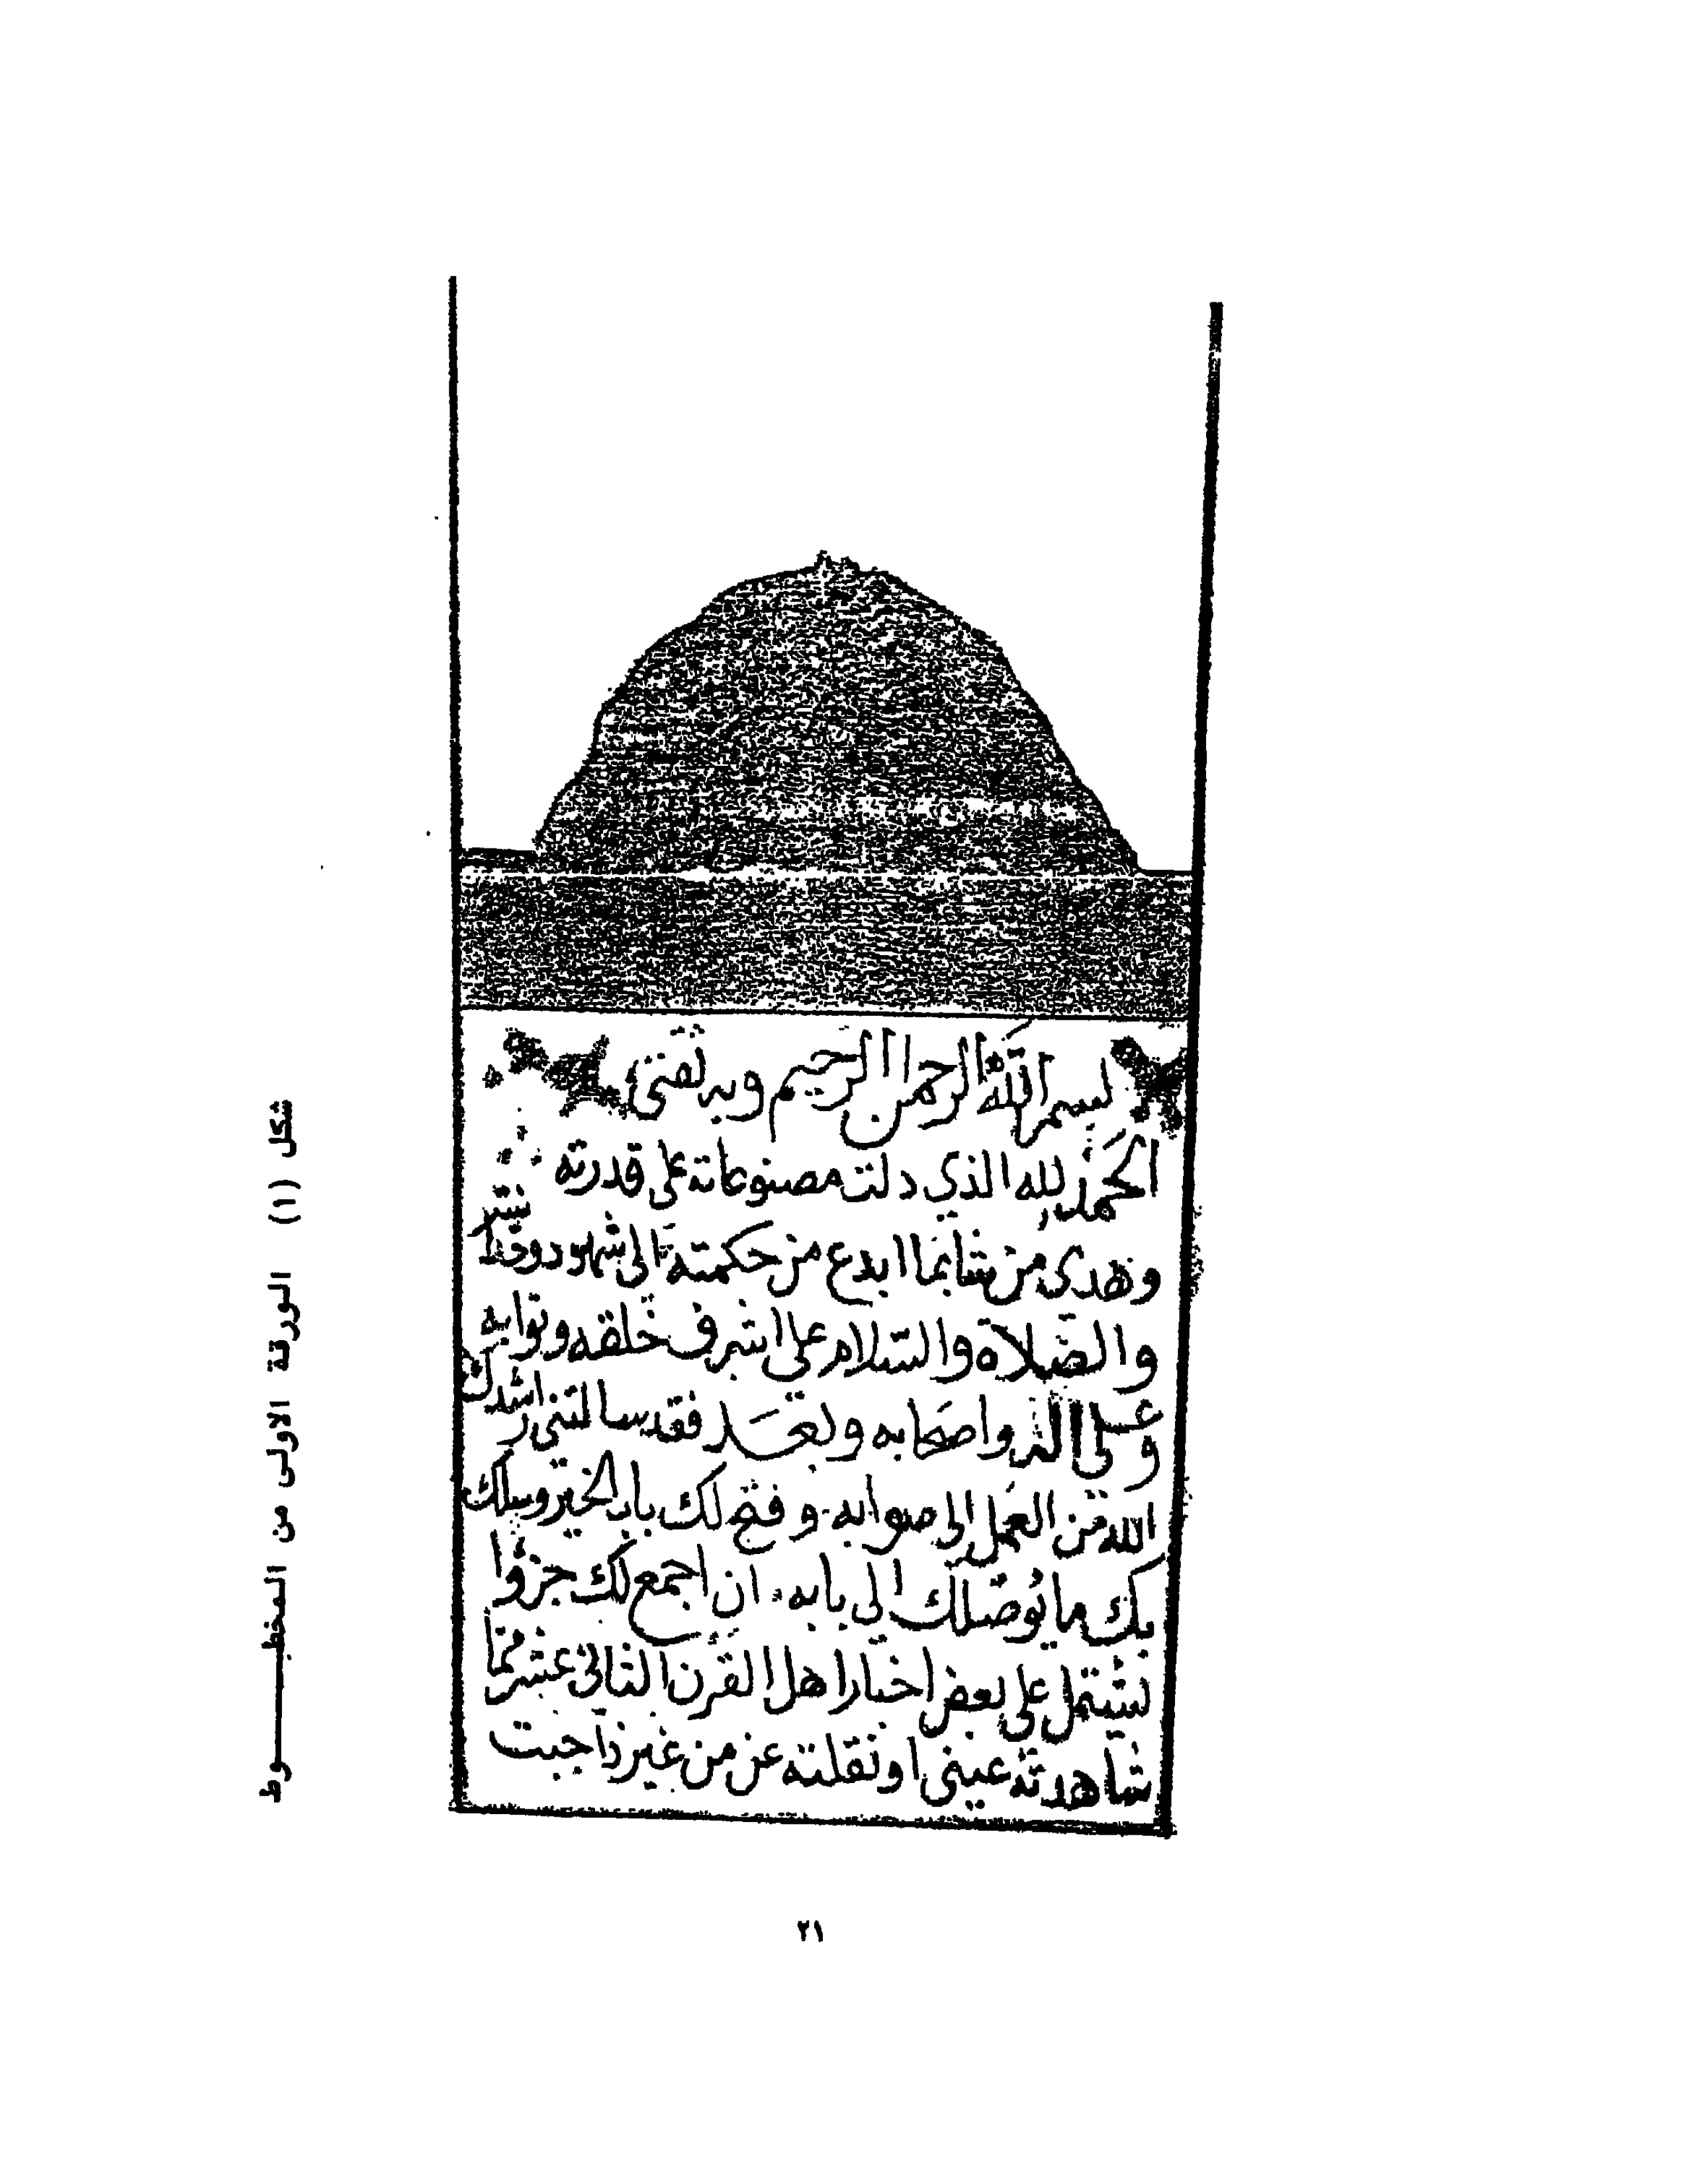 بسم الله الرحمن الرحيم وبه ثقتي
الحمد لله الذي دلت مصنوعاته على قدرته
ونهدي من شا بما ابدع من حكمته الى شهود
والصلاة والسلام على اشرف خلقه ونوابه
وعلى اله واصحابه وبعد فقد سالتني ارشدك
الله من العمل الى صوابه وفتح لك باب الخير وسلك
بك ما يوصلك الى بابه ان اجمع لك جزؤا
يشتمل على بعض اخبار اهل القرن الثاني عشر مما
شاهدته عيني او نقلته عن من غير ذا جبت
شكل (١) الورقة الاولى من المخطـــوط
٢١